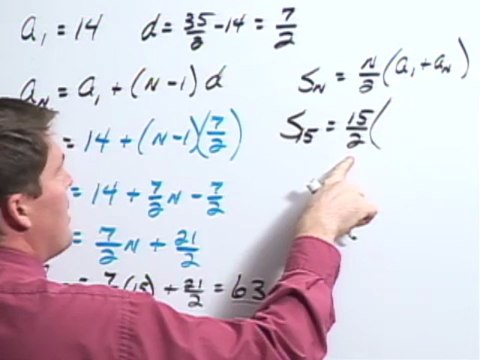 a₁ = 14   d = 35/2 - 14 = 7/2
aN = a₁ + (N-1) d   SN = N/2 (a₁ + aN)
= 14 + (N-1)(7/2)   S₁₅ = 15/2 (
= 14 + 7/2 N - 7/2
= 7/2 N + 21/2
= 7/2 (15) + 21/2 = 63